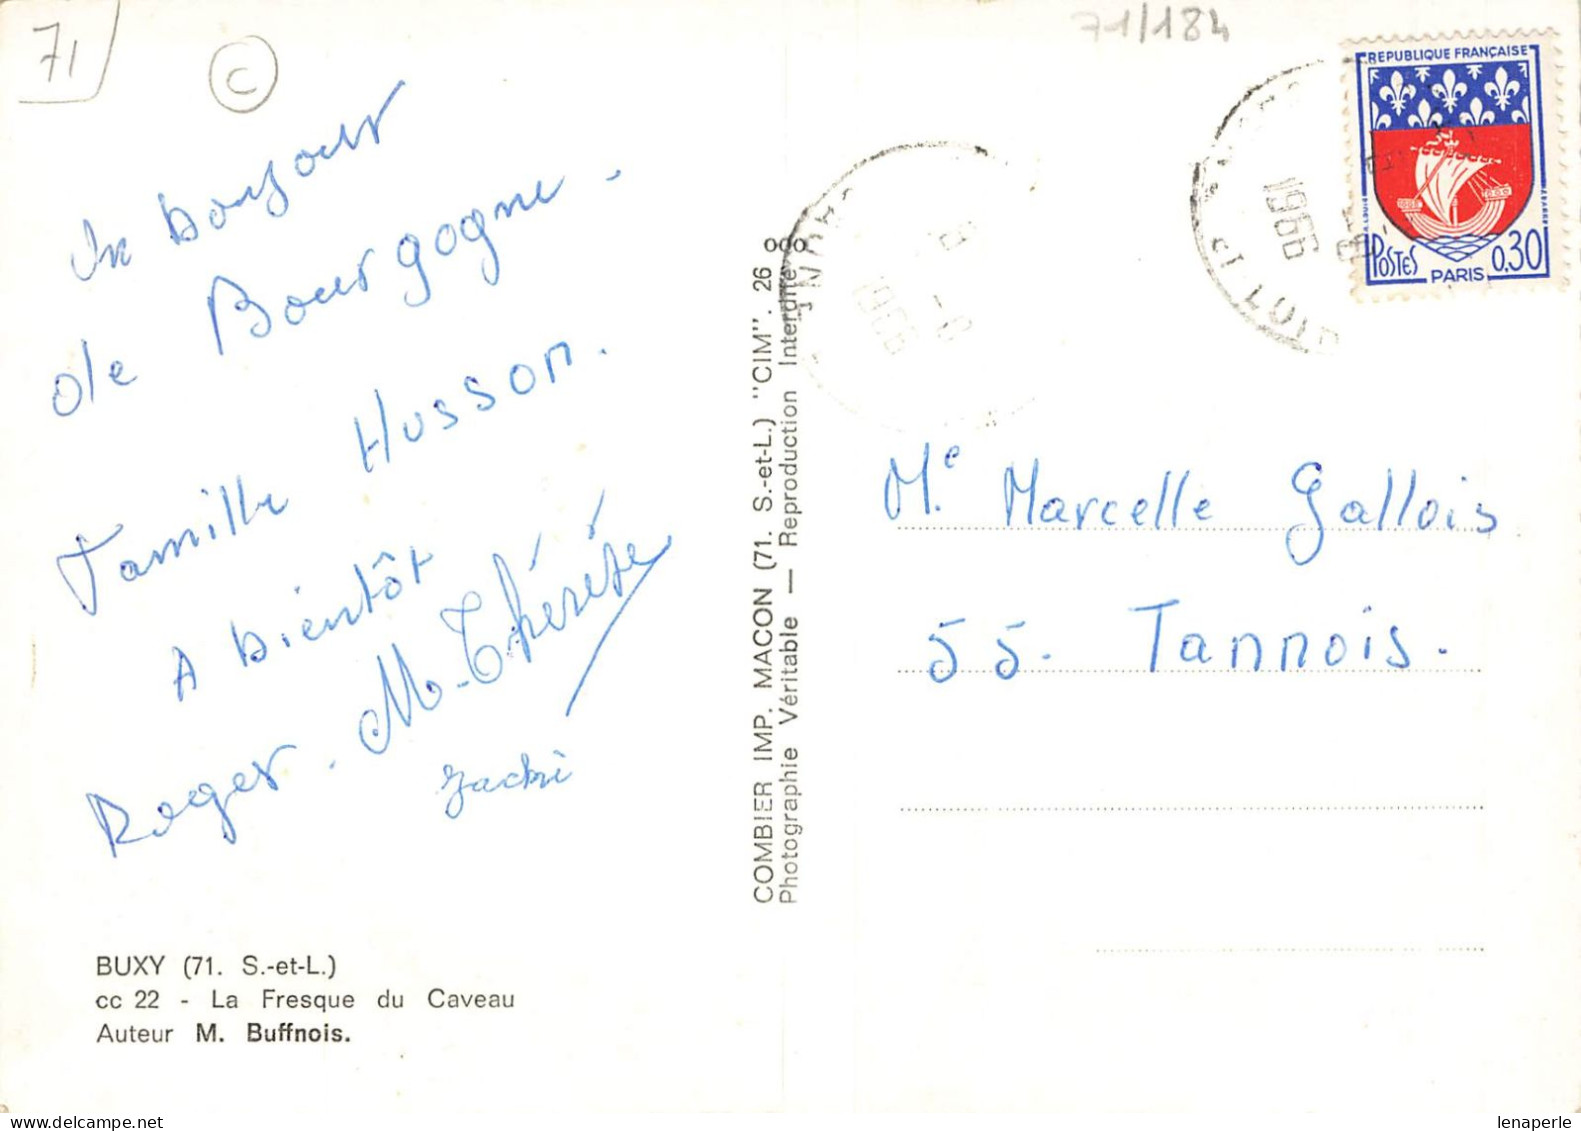 71
C
71/184
Un bonjour
de Bourgogne.
Famille Husson.
A bientôt
Roger. M. Thérèse
Jacki
BUXY (71. S.-et-L.)
cc 22 - La Fresque du Caveau
Auteur M. Buffnois.
COMBIER IMP. MACON (71. S.-et-L.) "CIM". 26 000
Photographie Véritable — Reproduction Interdite
1966
1966
REPUBLIQUE FRANÇAISE
POSTES 0,30
PARIS
Me. Marcelle Gallois
55. Tannois.
lenaperle